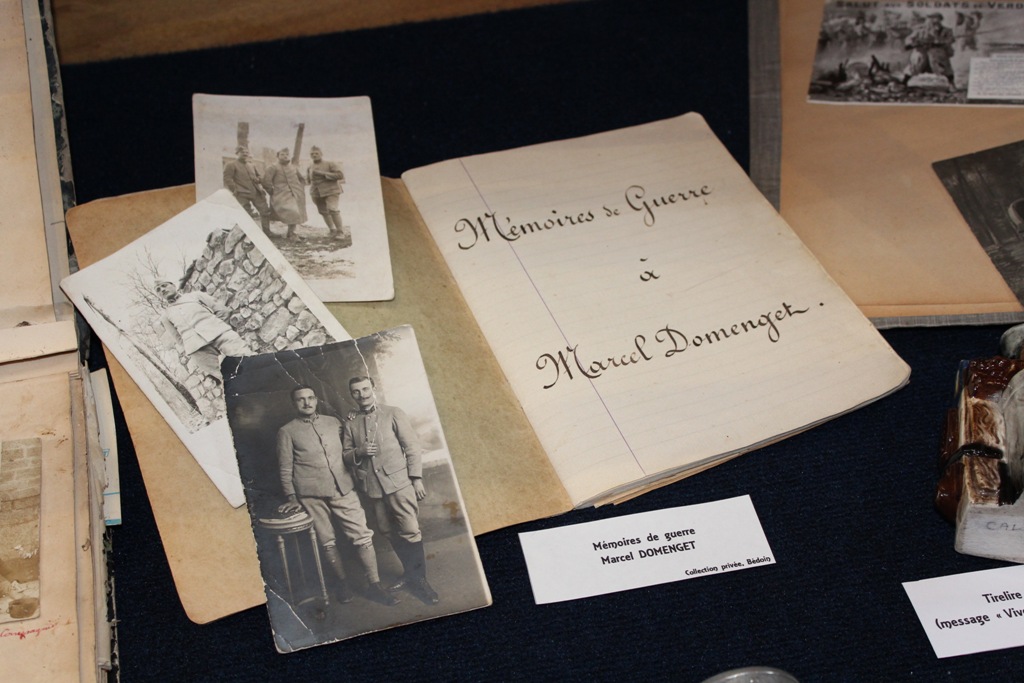 SALUT AUX SOLDATS DE VERD
Mémoires de Guerre
à
Marcel Domenget.
Mémoires de guerre
Marcel DOMENGET
Collection privée, Bédoin
CAL
Tirelire
(message « Viv